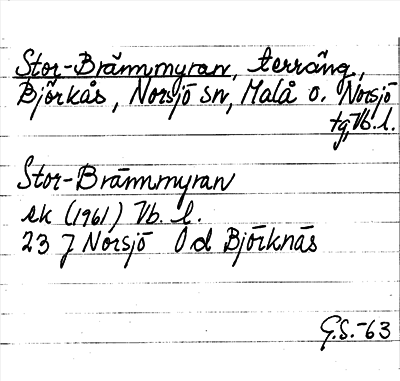 Stor-Brännmyran, terräng,
Björkås, Norsjö sn, Malå o. Norsjö
tg, Vb. l.
Stor-Brännmyran
ek (1961) Vb. l.
23 J Norsjö Od Björknäs
G.S.-63